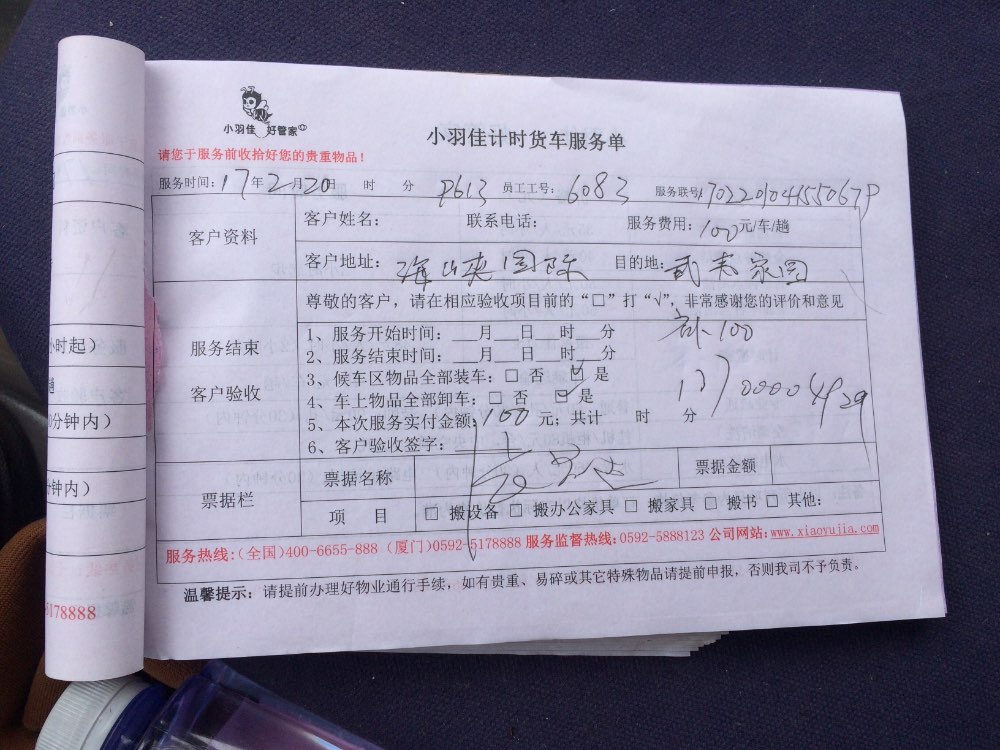 小羽佳 好管家
小羽佳计时货车服务单
请您于服务前收拾好您的贵重物品！
服务时间：17年2月20日 时 分 P613 员工工号：6083 服务联号：170220104155067P
客户资料
客户姓名： 联系电话： 服务费用：100元/车/趟
客户地址： 国际 目的地： 家园
服务结束
客户验收
尊敬的客户，请在相应验收项目前的“□”打“√”，非常感谢您的评价和意见
1、服务开始时间：___月___日___时___分 100
2、服务结束时间：___月___日___时___分
3、候车区物品全部装车：□ 否 ☑ 是
4、车上物品全部卸车：□ 否 ☑ 是
13700004929
5、本次服务实付金额：100 元；共计 时 分
6、客户验收签字：
票据栏
票据名称 票据金额
项 目 □ 搬设备 □ 搬办公家具 □ 搬家具 □ 搬书 □ 其他:
服务热线:(全国)400-6655-888 (厦门)0592-5178888 服务监督热线:0592-5888123 公司网站:www.xiaoyujia.com
温馨提示：请提前办理好物业通行手续，如有贵重、易碎或其它特殊物品请提前申报，否则我司不予负责。
小时起）
分钟内）
钟内）
5178888